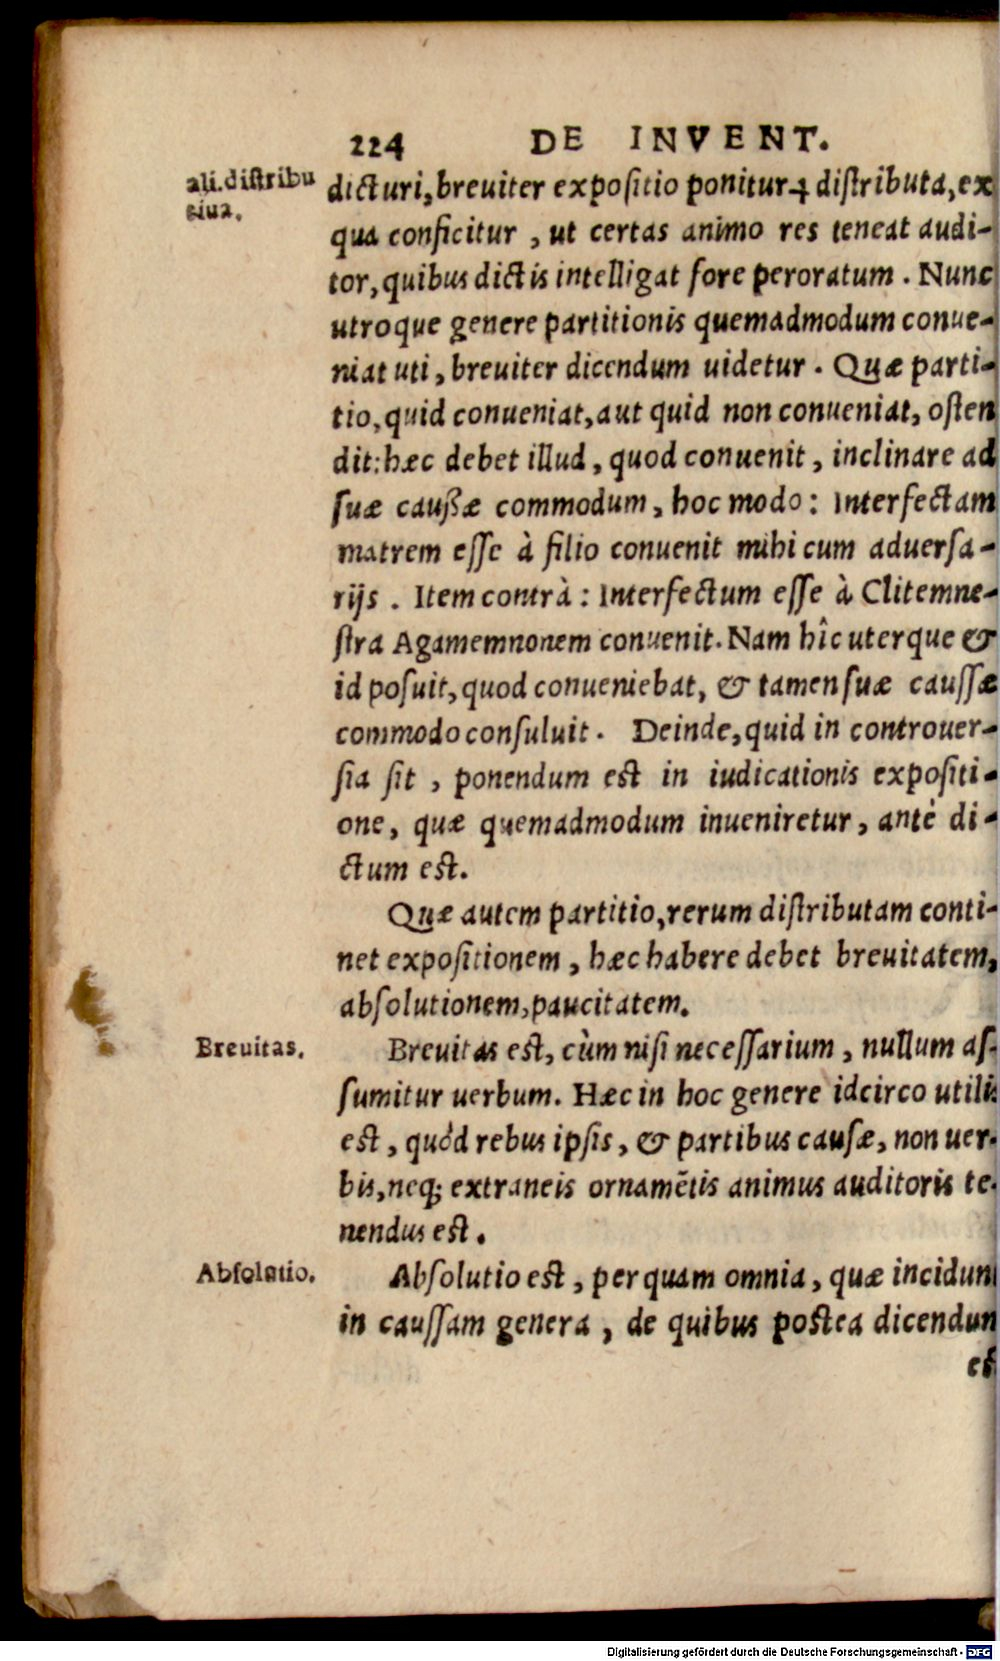 224 DE INVENT.
ali.distribu
tiua.
dicturi, breuiter expositio ponitur ⁊ distributa, ex
qua conficitur, ut certas animo res teneat audi-
tor, quibus dictis intelligat fore peroratum. Nunc
utroque genere partitionis quemadmodum conue-
niat uti, breuiter dicendum uidetur. Quæ parti-
tio, quid conueniat, aut quid non conueniat, osten
dit: hæc debet illud, quod conuenit, inclinare ad
suæ caußæ commodum, hoc modo: Interfectam
matrem esse à filio conuenit mihi cum aduersa-
rijs. Item contrà: Interfectum esse à Clitemne-
stra Agamemnonem conuenit. Nam hîc uterque &
id posuit, quod conueniebat, & tamen suæ caussæ
commodo consuluit. Deinde, quid in controuer-
sia sit, ponendum est in iudicationis expositi-
one, quæ quemadmodum inueniretur, antè di-
ctum est.
Quæ autem partitio, rerum distributam conti-
net expositionem, hæc habere debet breuitatem,
absolutionem, paucitatem.
Breuitas.
Breuitas est, cùm nisi necessarium, nullum as-
sumitur uerbum. Hæc in hoc genere idcirco utilis
est, quòd rebus ipsis, & partibus causæ, non uer-
bis, neq; extraneis ornamẽtis animus auditoris te-
nendus est.
Absolutio.
Absolutio est, per quam omnia, quæ incidunt
in caussam genera, de quibus postea dicendum
est
Digitalisierung gefördert durch die Deutsche Forschungsgemeinschaft - DFG